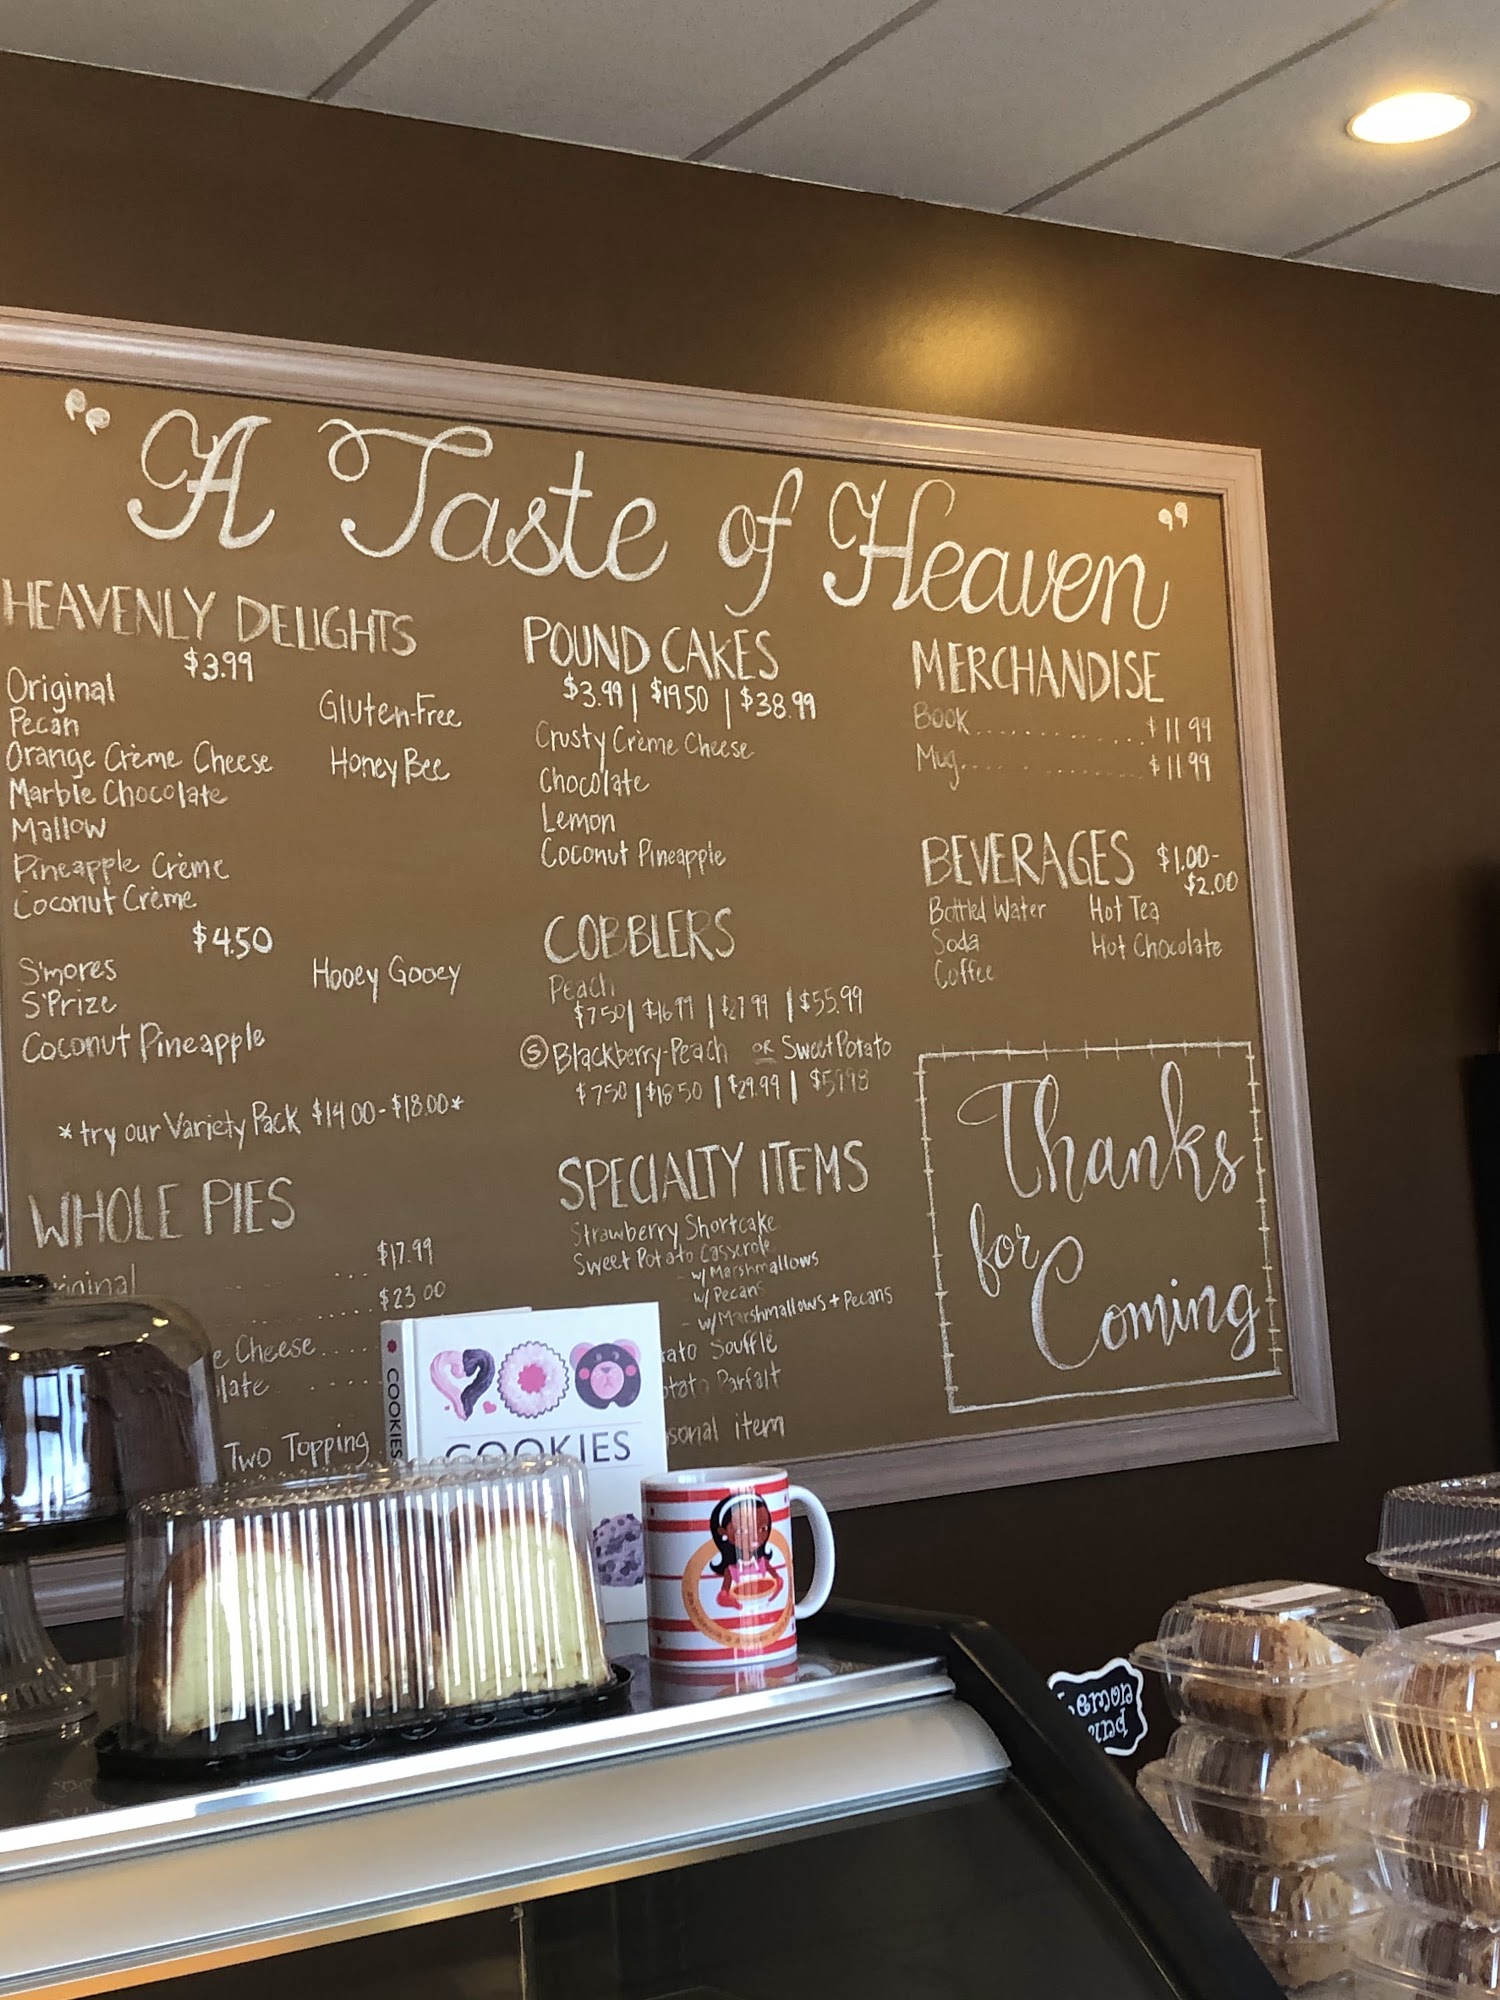 "A Taste of Heaven"
HEAVENLY DELIGHTS
$3.99
Original
Pecan
Orange Crème Cheese
Marble Chocolate
Mallow
Pineapple Crème
Coconut Crème
Gluten-Free
Honey Bee
$4.50
S'mores
S'Prize
Coconut Pineapple
Hooey Gooey
*try our Variety Pack $14.00-$18.00*
WHOLE PIES
$17.99
$23.00
Cheese
Two Topping
POUND CAKES
$3.99 | $19.50 | $38.99
Crusty Crème Cheese
Chocolate
Lemon
Coconut Pineapple
COBBLERS
Peach
$7.50 | $16.99 | $27.99 | $55.99
(S) Blackberry-Peach OR Sweet Potato
$7.50 | $18.50 | $29.99 | $59.98
SPECIALTY ITEMS
Strawberry Shortcake
Sweet Potato Casserole
- w/Marshmallows
w/Pecans
- w/Marshmallows + Pecans
Soufflé
Parfait
item
MERCHANDISE
Book.............$11.99
Mug.............$11.99
BEVERAGES $1.00-
$2.00
Bottled Water
Soda
Coffee
Hot Tea
Hot Chocolate
Thanks
for
Coming
COOKIES
COOKIES